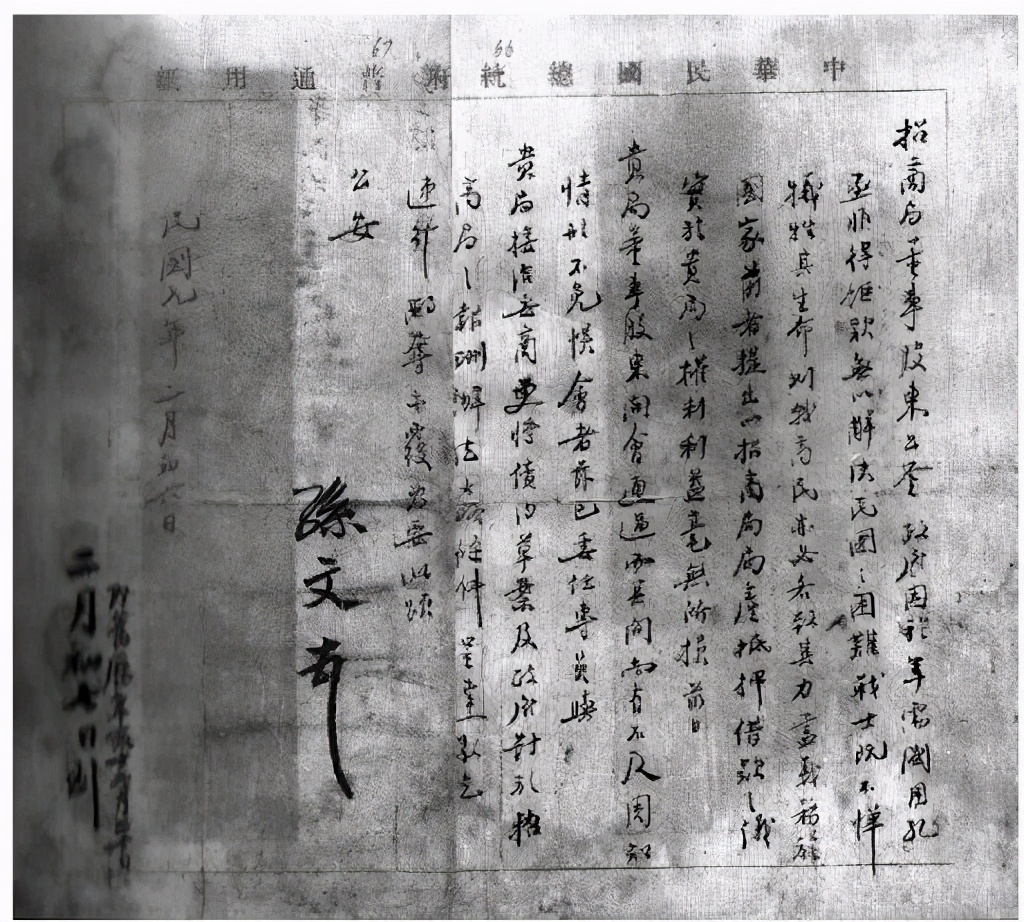 中華民國總統府 通用紙
67
66
招商局董事股東公鑒 政府因籌軍需國用孔
亟非得鉅款無以解決民國之困難戰士既不憚
犧牲其生命則我商民亦必各致其力盡義務於
國家前者提出以招商局局產抵押借款之議
實於貴局之權利利益毫無所損前日
貴局董事股東開會通過而其間尚有不及周知
情形不免誤會者茲已委任專員與
貴局接洽妥商更將債約草案及政府對於招
商局之報酬辦法大綱條件呈達敬乞
速行 爲要此頌
公安
孫文
民國元年二月初六日
二月初七日到